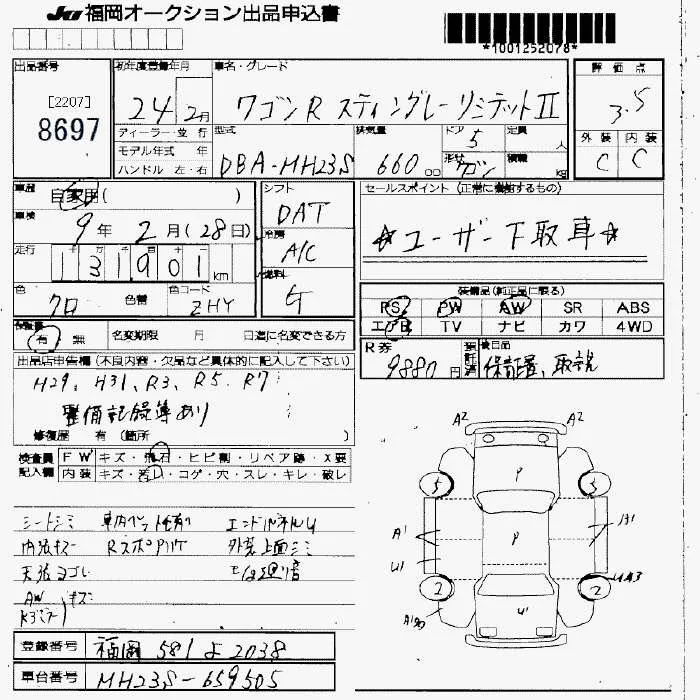 JU 福岡オークション出品申込書
*1001252078*
出品番号
[2207]
8697
初年度登録年月
24年 2月
ディーラー・並行
モデル年式 年
ハンドル 左・右
車名・グレード
ワゴンR スティングレーリミテッドII
型式
DBA-MH23S
排気量
660 cc
ドア 5
形状 ワゴン
定員 人
積載 kg
評価点
3.5
外装 内装
C C
車歴
自家用( )
車検
9年 2月(28日)
走行
131901 km
色
クロ
色替
色コード
ZHY
シフト
DAT
冷房
A/C
燃料
G
セールスポイント(正常に機動するもの)
☆ユーザー下取車☆
装備品(純正品に限る)
PS PW AW SR ABS
エアB TV ナビ カワ 4WD
保証書
有 無
名変期限 月 日迄に名変できる方
R券
9880円
預託済
後日品
保証書、取説
出品店申告欄(不良内容・欠品など具体的に記入して下さい)
H29、H31、R3、R5、R7
整備記録簿あり
修復歴 有 (箇所 )
検査員記入欄
FW キズ・飛石・ヒビ割・リペア跡・X要
内装 キズ・汚し・コゲ・穴・スレ・キレ・破レ
シートシミ
内張キズ
天張ヨゴレ
外装上面シミ
AW キズ
A2 A2
5 P 5
A1 P B1
U1
2 U1 2
登録番号 福岡 581 よ 2038
車台番号 MH23S-659505